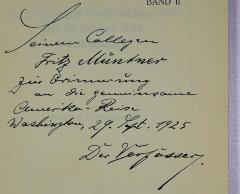 BAND II
Seinem Collegen
Fritz Müntner
zur Erinnerung
an die gemeinsame
Amerika-Reise
Washington, 29. Sept. 1925
Der Verfasser.